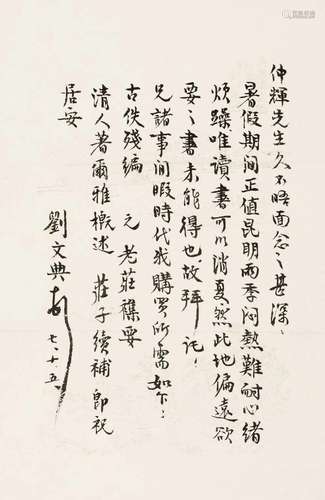 仲輝先生久不晤面念之甚深、
暑假期间正值昆明雨季闷熱難耐心緒
烦躁唯读書可以消夏然此地偏遠欲
要之書未能得也、故拜讬、
兄諸事闲暇時代我購買所需如下：
古佚殘编 元 老莊襍要
清人著爾雅概述 莊子續補 即祝
居安
劉文典
七、十五、